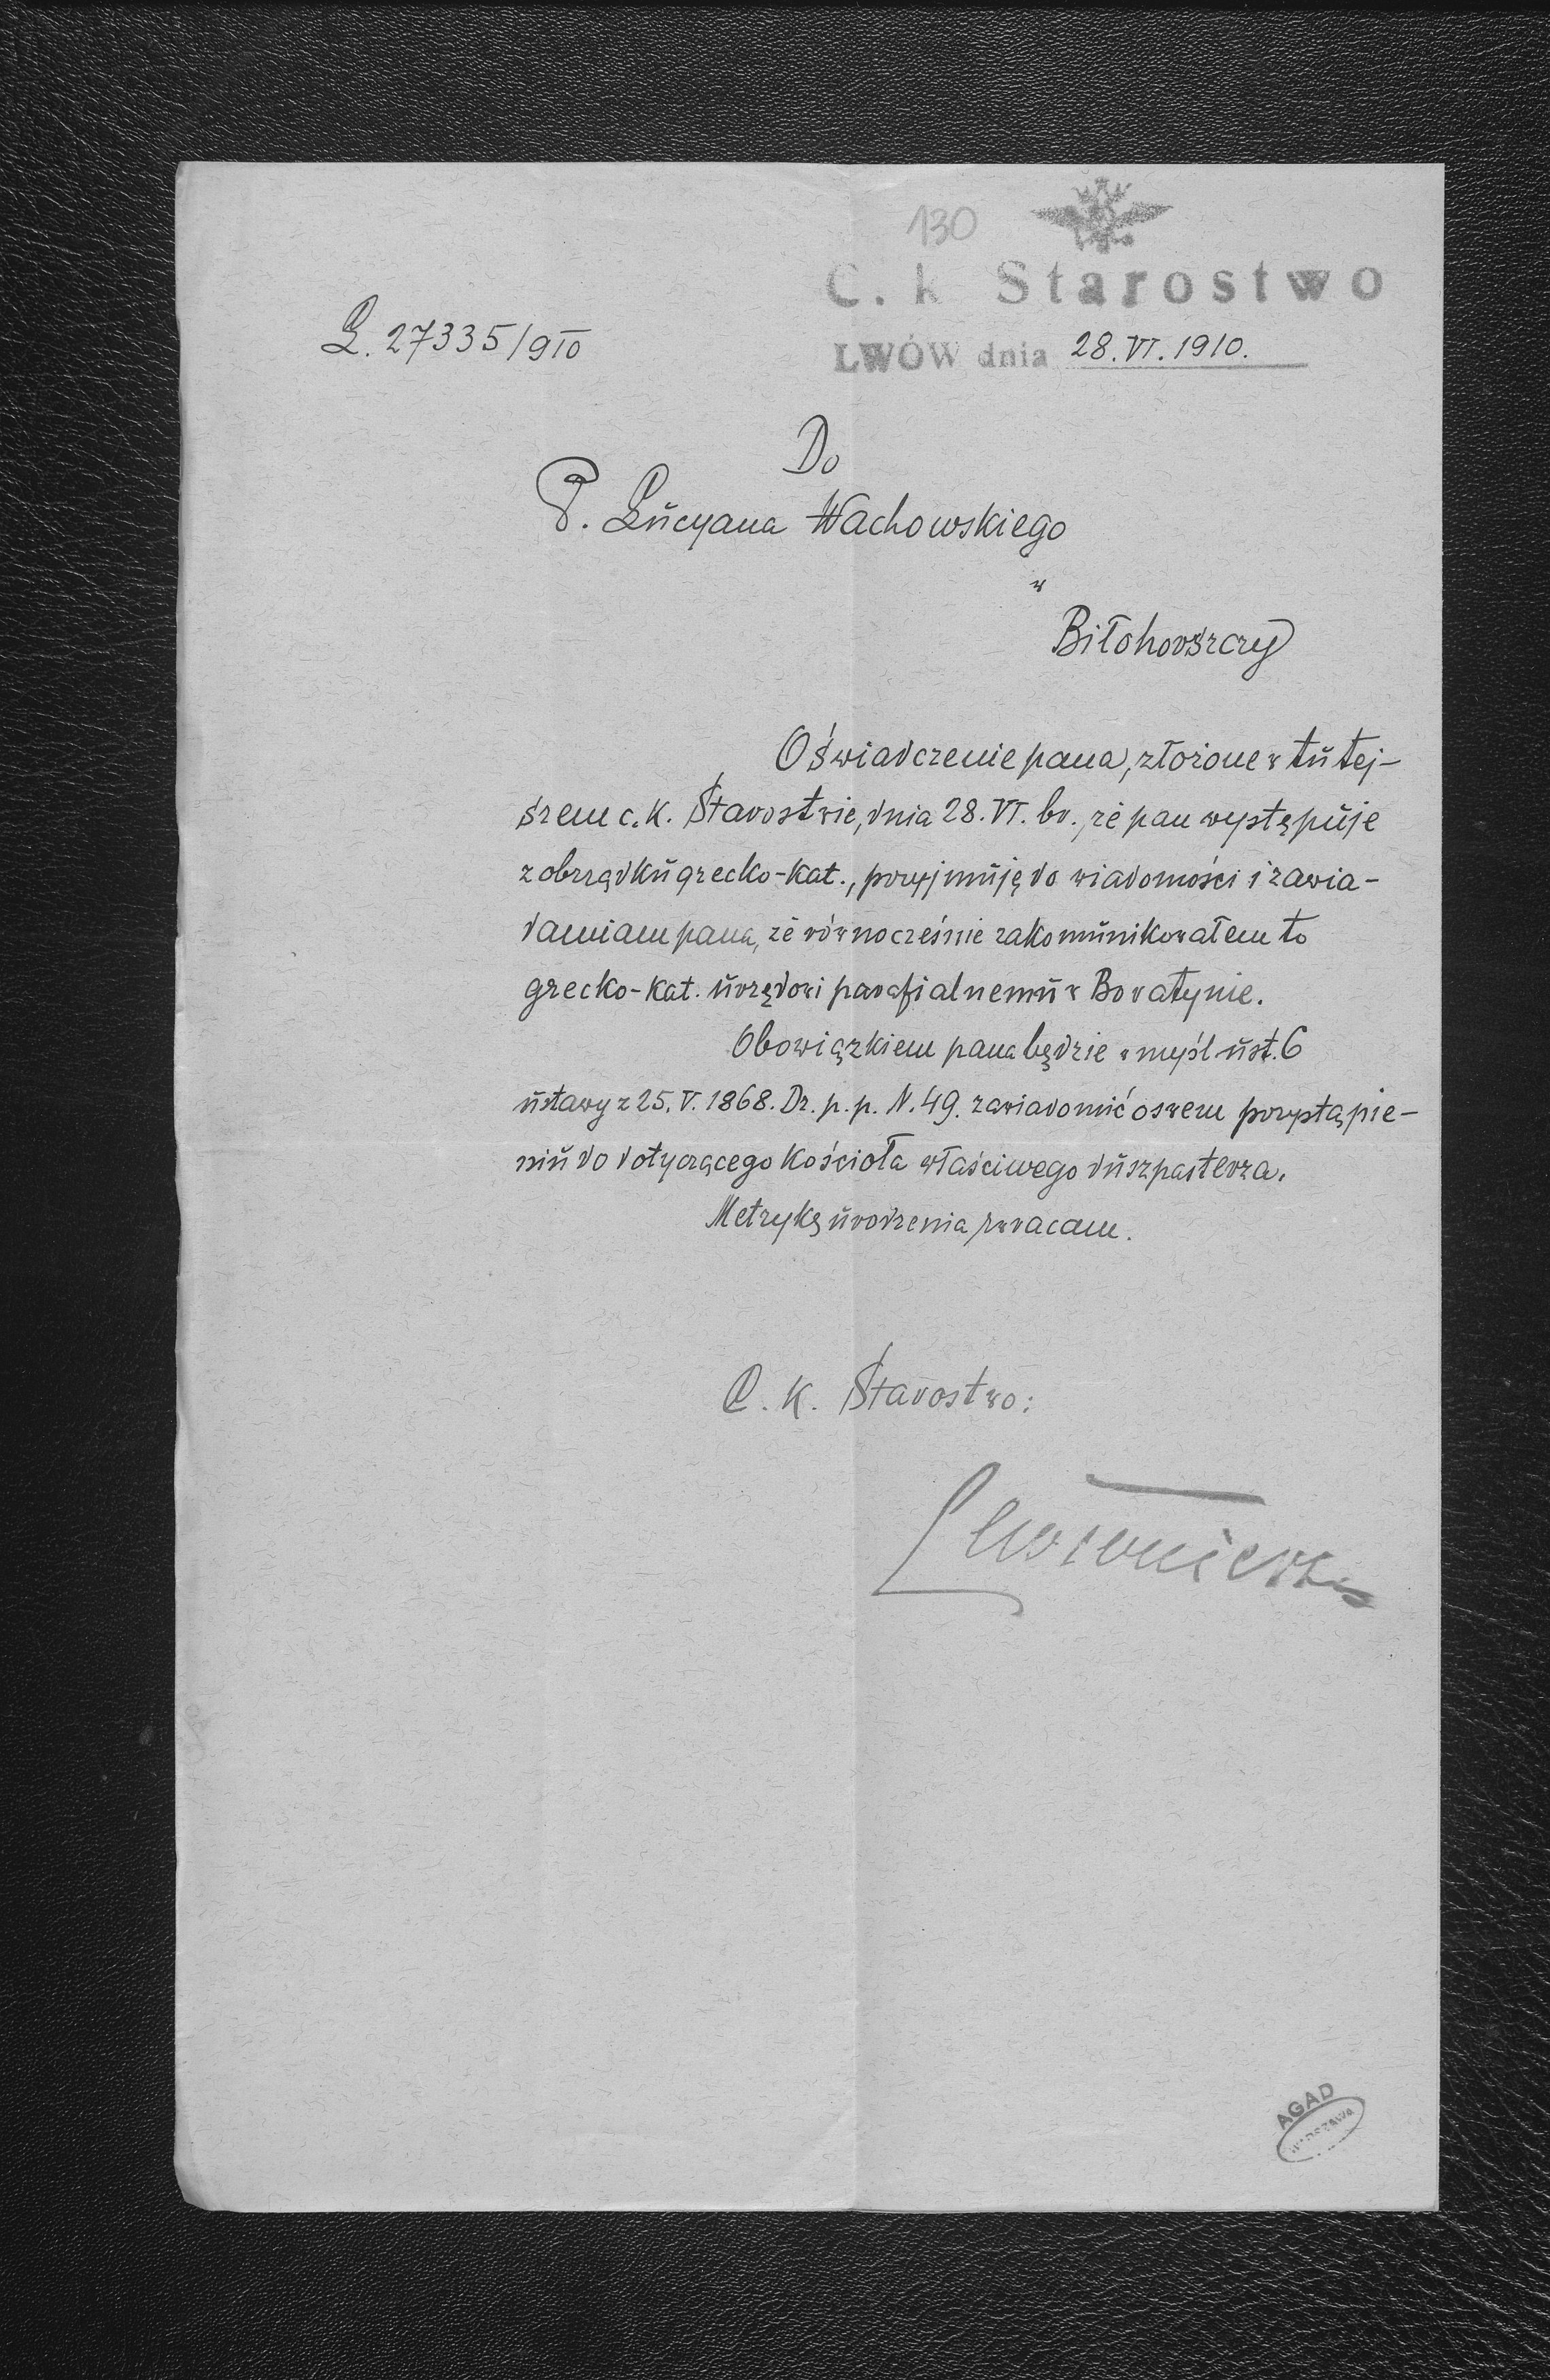 130
C. k Starostwo
L. 27335/910
LWÓW dnia 28. VI. 1910.
Do
P. Lucyana Wachowskiego
w
Biłohorszczy
Oświadczenie pana, złożone w tutej-
szem c. k. Starostwie, dnia 28. VI. br., że pan występuje
z obrządku grecko-kat., przyjmuję do wiadomości i zawia-
damiam pana, że równocześnie zakomunikowałem to
grecko-kat. urzędowi parafialnemu w Boratynie.
Obowiązkiem pana będzie w myśl ust. 6
ustawy z 25. V. 1868. Dz. p. p. N. 49. zawiadomić o swem przystąpie-
niu do dotyczącego kościoła właściwego duszpasterza.
Metrykę urodzenia zwracam.
C. k. Starostwo:
AGAD
WARSZAWA